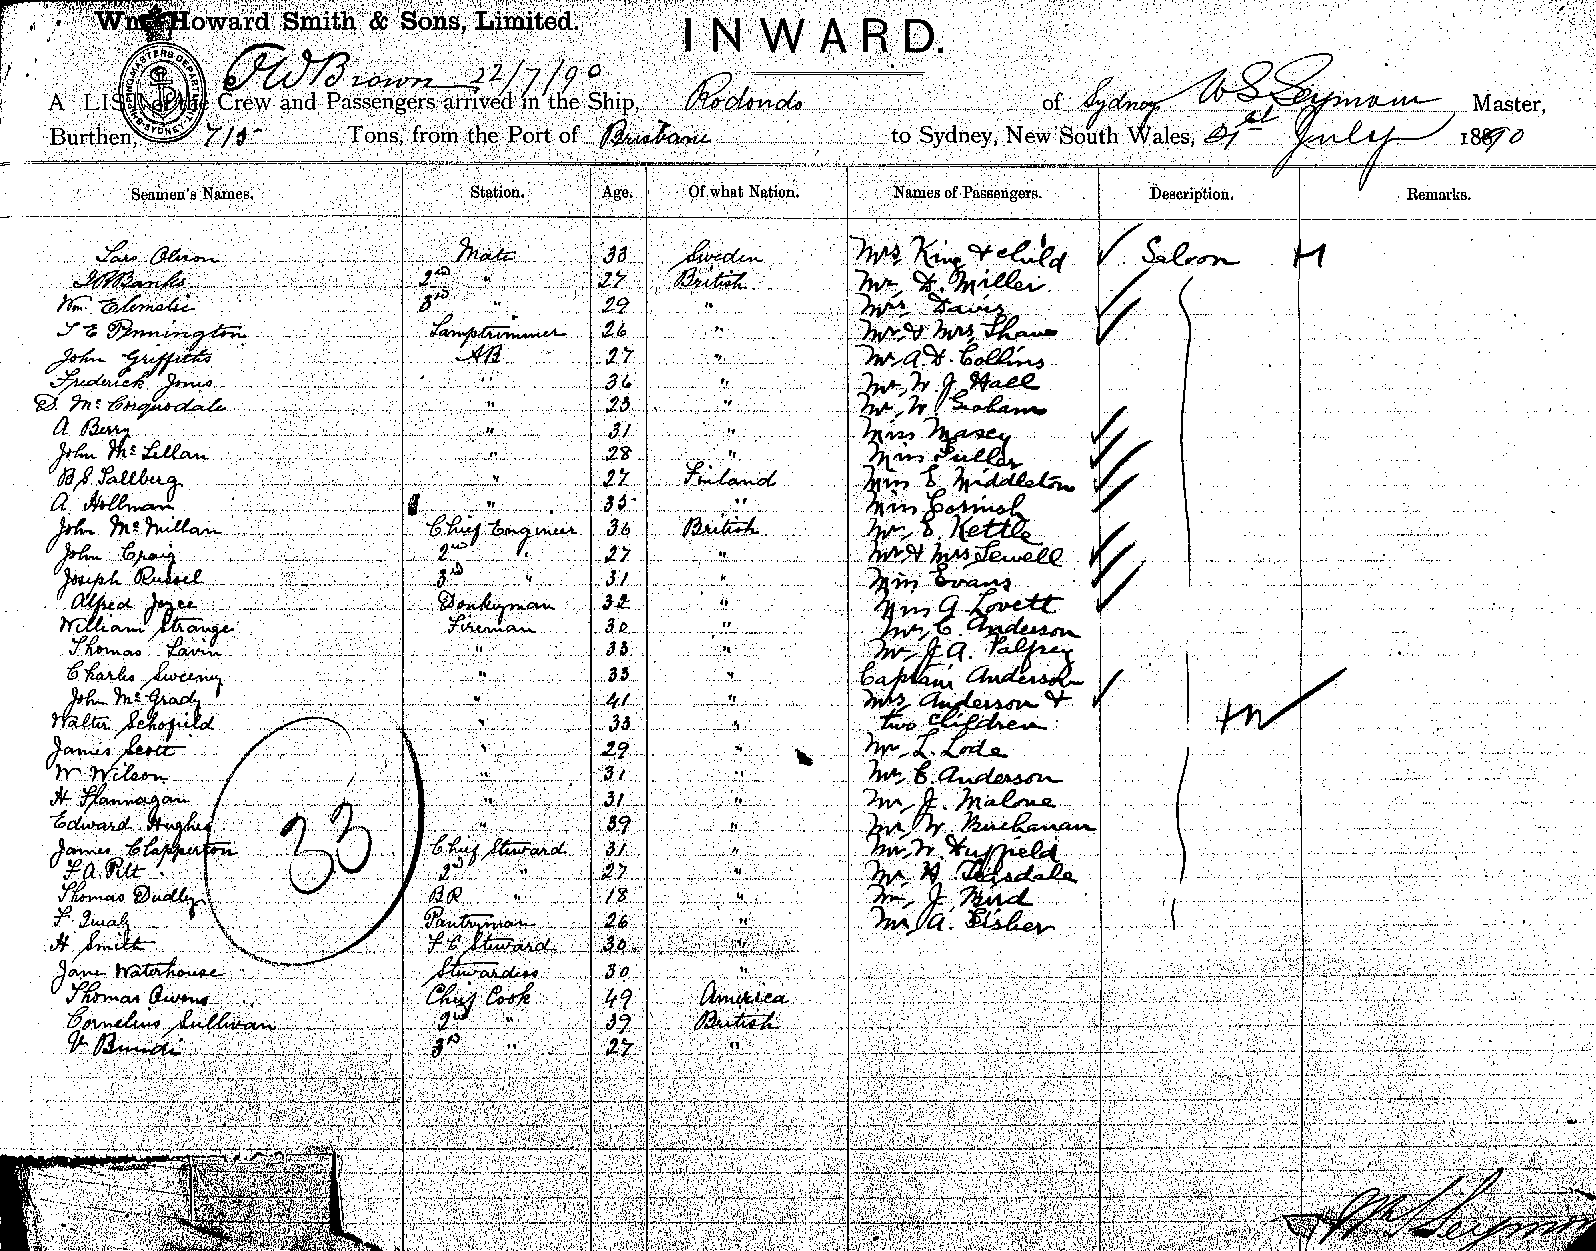 Wm. Howard Smith & Sons, Limited.
INWARD.
J W Brown 22/7/90
A LIST of the Crew and Passengers arrived in the Ship, Rodondo of Sydney W S Seymour Master,
Burthen, 715 Tons, from the Port of Brisbane to Sydney, New South Wales, 21st July 1890
Seamen's Names. Station. Age. Of what Nation. Names of Passengers. Description. Remarks.
Lars Olsson Mate 33 Sweden Mrs King & child Saloon
Banks 2nd " 27 British Mr D. Miller
Wm. 3rd " 29 " Mrs Davis
T E Pennington Lamptrimmer 26 " Mr & Mrs Shaw
John Griffiths AB 27 " Mr A. D. Collins
Frederick Jones " 36 " Mr W. J. Hall
D. McCorquodale " 23 " Mr W Graham
A Berry " 31 " Miss Masey
John McLellan " 28 " Miss Fuller
B S Sallberg " 27 Finland Miss E Middleton
A. Hollman " 35 " Miss Cornish
John McMillan Chief Engineer 36 British Mr E Kettle
John Craig 2nd " 27 " Mr & Mrs Sewell
Joseph Russel 3rd " 31 " Miss Evans
Alfred Joyce Donkyman 32 " Miss G. Lovett
William Strange Fireman 30 " Mr C Anderson
Thomas Lavin " 33 " Mr J. A. Palfrey
Charles Sweeney " 33 " Captain Anderson
John McGrady " 41 " Mrs Anderson &
Walter Schofield " 33 " two children
James Scott " 29 " Mr L. Lode
W Wilson " 31 " Mr C. Anderson
H Flannagan " 31 " Mr J. Malone
Edward Hughes " 39 " Mr W Buchanan
James Clapperton Chief Steward 31 " Mr W. Duffield
F. A. Pitt 2nd " 27 " Mr H Teasdale
Thomas Dudley BR " 18 " Mr J Bird
F. Pantryman 26 " Mr A. Fisher
H Smith F C Steward 30 "
Jane Waterhouse Stewardess 30 "
Thomas Owens Chief Cook 49 America
Cornelius Sullivan 2nd " 39 British
V Bundi 3rd " 27 "
33
Wm S Seymour